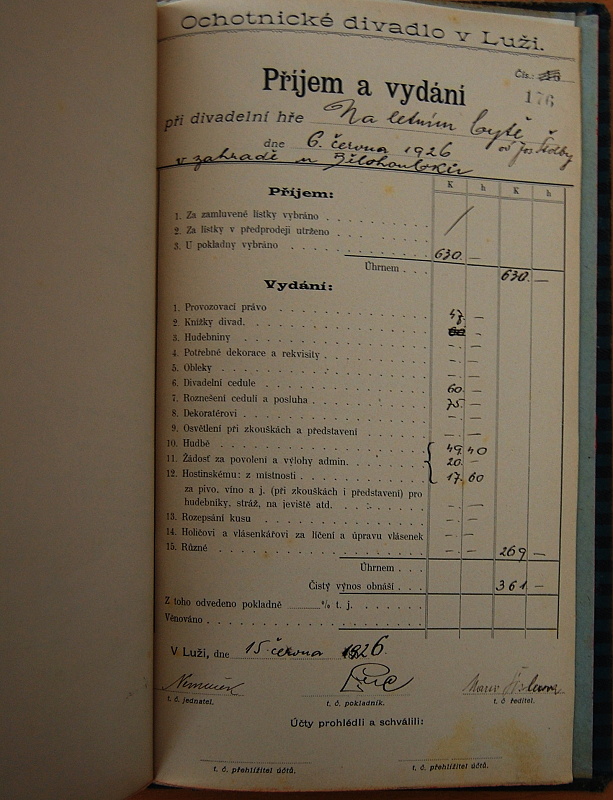 Ochotnické divadlo v Luži.
Čís.:
176
Příjem a vydání
při divadelní hře Na letním bytě
dne 6. června 1926
v zahradě u
Příjem:
K h K h
1. Za zamluvené lístky vybráno
2. Za lístky v předprodeji utrženo
3. U pokladny vybráno 630 —
Úhrnem 630 —
Vydání:
1. Provozovací právo 47 —
2. Knížky divad.
3. Hudebniny
4. Potřebné dekorace a rekvisity
5. Obleky
6. Divadelní cedule 60 —
7. Roznešení cedulí a posluha 75 —
8. Dekoratérovi
9. Osvětlení při zkouškách a představení
10. Hudbě 49 40
11. Žádosť za povolení a výlohy admin. 20 —
12. Hostinskému: z místnosti 17 60
za pivo, víno a j. (při zkouškách i představení) pro
hudebníky, stráž, na jeviště atd.
13. Rozepsání kusu
14. Holičovi a vlásenkářovi za líčení a úpravu vlásenek
15. Různé 269 —
Úhrnem
Čistý výnos obnáší 361 —
Z toho odvedeno pokladně % t. j.
Věnováno
V Luži, dne 15. června 1926.
t. č. jednatel.
t. č. pokladník.
t. č. ředitel.
Účty prohlédli a schválili:
t. č. přehlížitel účtů.
t. č. přehlížitel účtů.